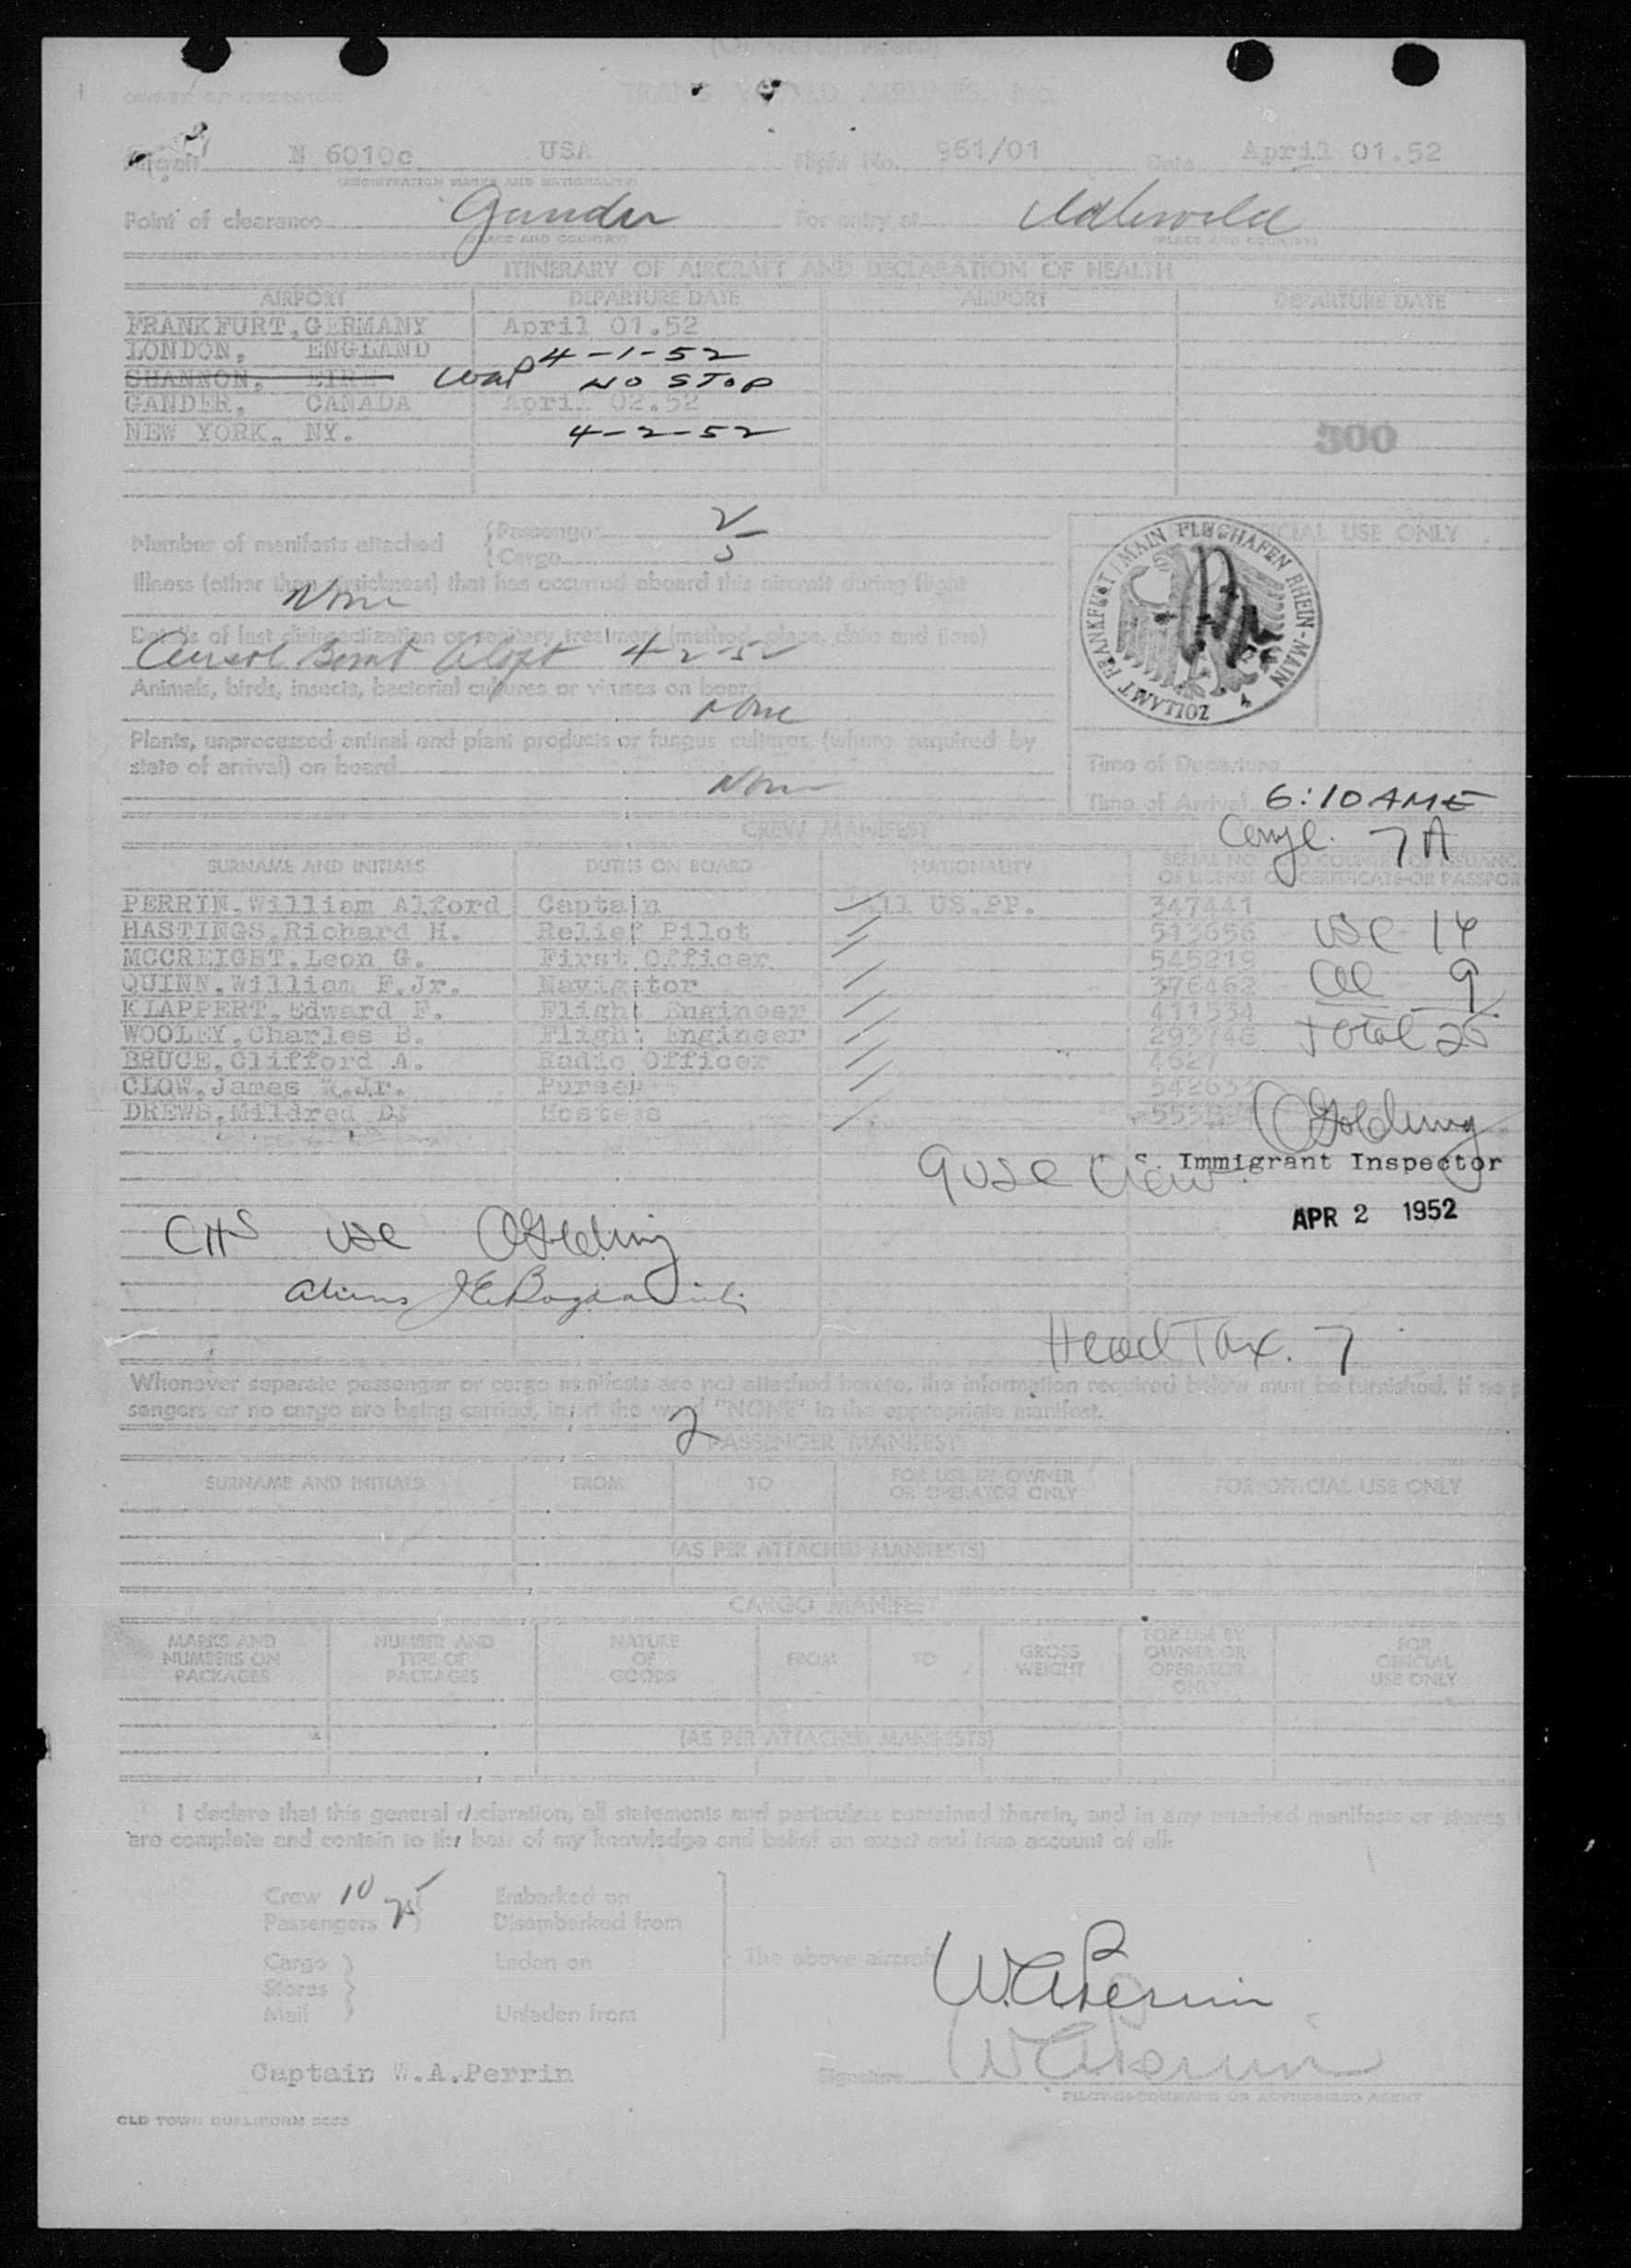 (Outward/Inward)
OWNER OR OPERATOR TRANS WORLD AIRLINES, Inc.
Aircraft N 6010c USA Flight No. 961/01 Date April 01.52
(REGISTRATION MARKS AND NATIONALITY)
Point of clearance Gander For entry at Idlewild
(PLACE AND COUNTRY) (PLACE AND COUNTRY)
ITINERARY OF AIRCRAFT AND DECLARATION OF HEALTH
AIRPORT DEPARTURE DATE AIRPORT DEPARTURE DATE
FRANKFURT, GERMANY April 01.52
LONDON, ENGLAND 4-1-52
SHANNON, EIRE WAP NO STOP
GANDER, CANADA April 02.52
NEW YORK, NY. 4-2-52
300
Number of manifests attached {Passenger 2
{Cargo 5
OFFICIAL USE ONLY
FRANKFURT/MAIN FLUGHAFEN RHEIN-MAIN ZOLLAMT
Illness (other than airsickness) that has occurred aboard this aircraft during flight
None
Details of last disinsectization or sanitary treatment (method, place, date and time)
Aerosol Bomb Aloft 4-2-52
Animals, birds, insects, bacterial cultures or viruses on board
None
Plants, unprocessed animal and plant products or fungus cultures, (where required by
state of arrival) on board
None
Time of Departure
Time of Arrival 6:10 AME
7A
CREW MANIFEST
SURNAME AND INITIALS DUTIES ON BOARD NATIONALITY SERIAL NO. AND COUNTRY OF ISSUANCE
OF LICENSE OR CERTIFICATE OR PASSPOR
PERRIN, William Alford Captain All US.PP. 347441
HASTINGS, Richard H. Relief Pilot 513656 USC 16
MCCREIGHT, Leon G. First Officer 545219
QUINN, William F.Jr. Navigator 376462 al 9
KLAPPERT, Edward F. Flight Engineer 411534
WOOLEY, Charles B. Flight Engineer 293748 Total 25
BRUCE, Clifford A. Radio Officer 4627
CLOW, James W.Jr. Purser
DREWS, Mildred D. Hostess
OGolding
9 USC Crew S. Immigrant Inspector
APR 2 1952
CHS USC OGolding
Aliens
Head Tax. 7
Whenever separate passenger or cargo manifests are not attached hereto, the information required below must be furnished. If no p
sengers or no cargo are being carried, insert the word "NONE" in the appropriate manifest.
2
PASSENGER MANIFEST
SURNAME AND INITIALS FROM TO FOR USE BY OWNER OR OPERATOR ONLY FOR OFFICIAL USE ONLY
(AS PER ATTACHED MANIFESTS)
CARGO MANIFEST
MARKS AND NUMBERS ON PACKAGES NUMBER AND TYPE OF PACKAGES NATURE OF GOODS FROM TO GROSS WEIGHT FOR USE BY OWNER OR OPERATOR ONLY FOR OFFICIAL USE ONLY
(AS PER ATTACHED MANIFESTS)
I declare that this general declaration, all statements and particulars contained therein, and in any attached manifests or stores
are complete and contain to the best of my knowledge and belief an exact and true account of all:
Crew 10 Embarked on
Passengers 25 Disembarked from
Cargo Laden on The above aircraft
Stores
Mail Unladen from
W.A.Perrin
Captain W.A.Perrin Signature W.A.Perrin
PILOT-IN-COMMAND OR AUTHORIZED AGENT
OLD TOWN DUPLIFORM